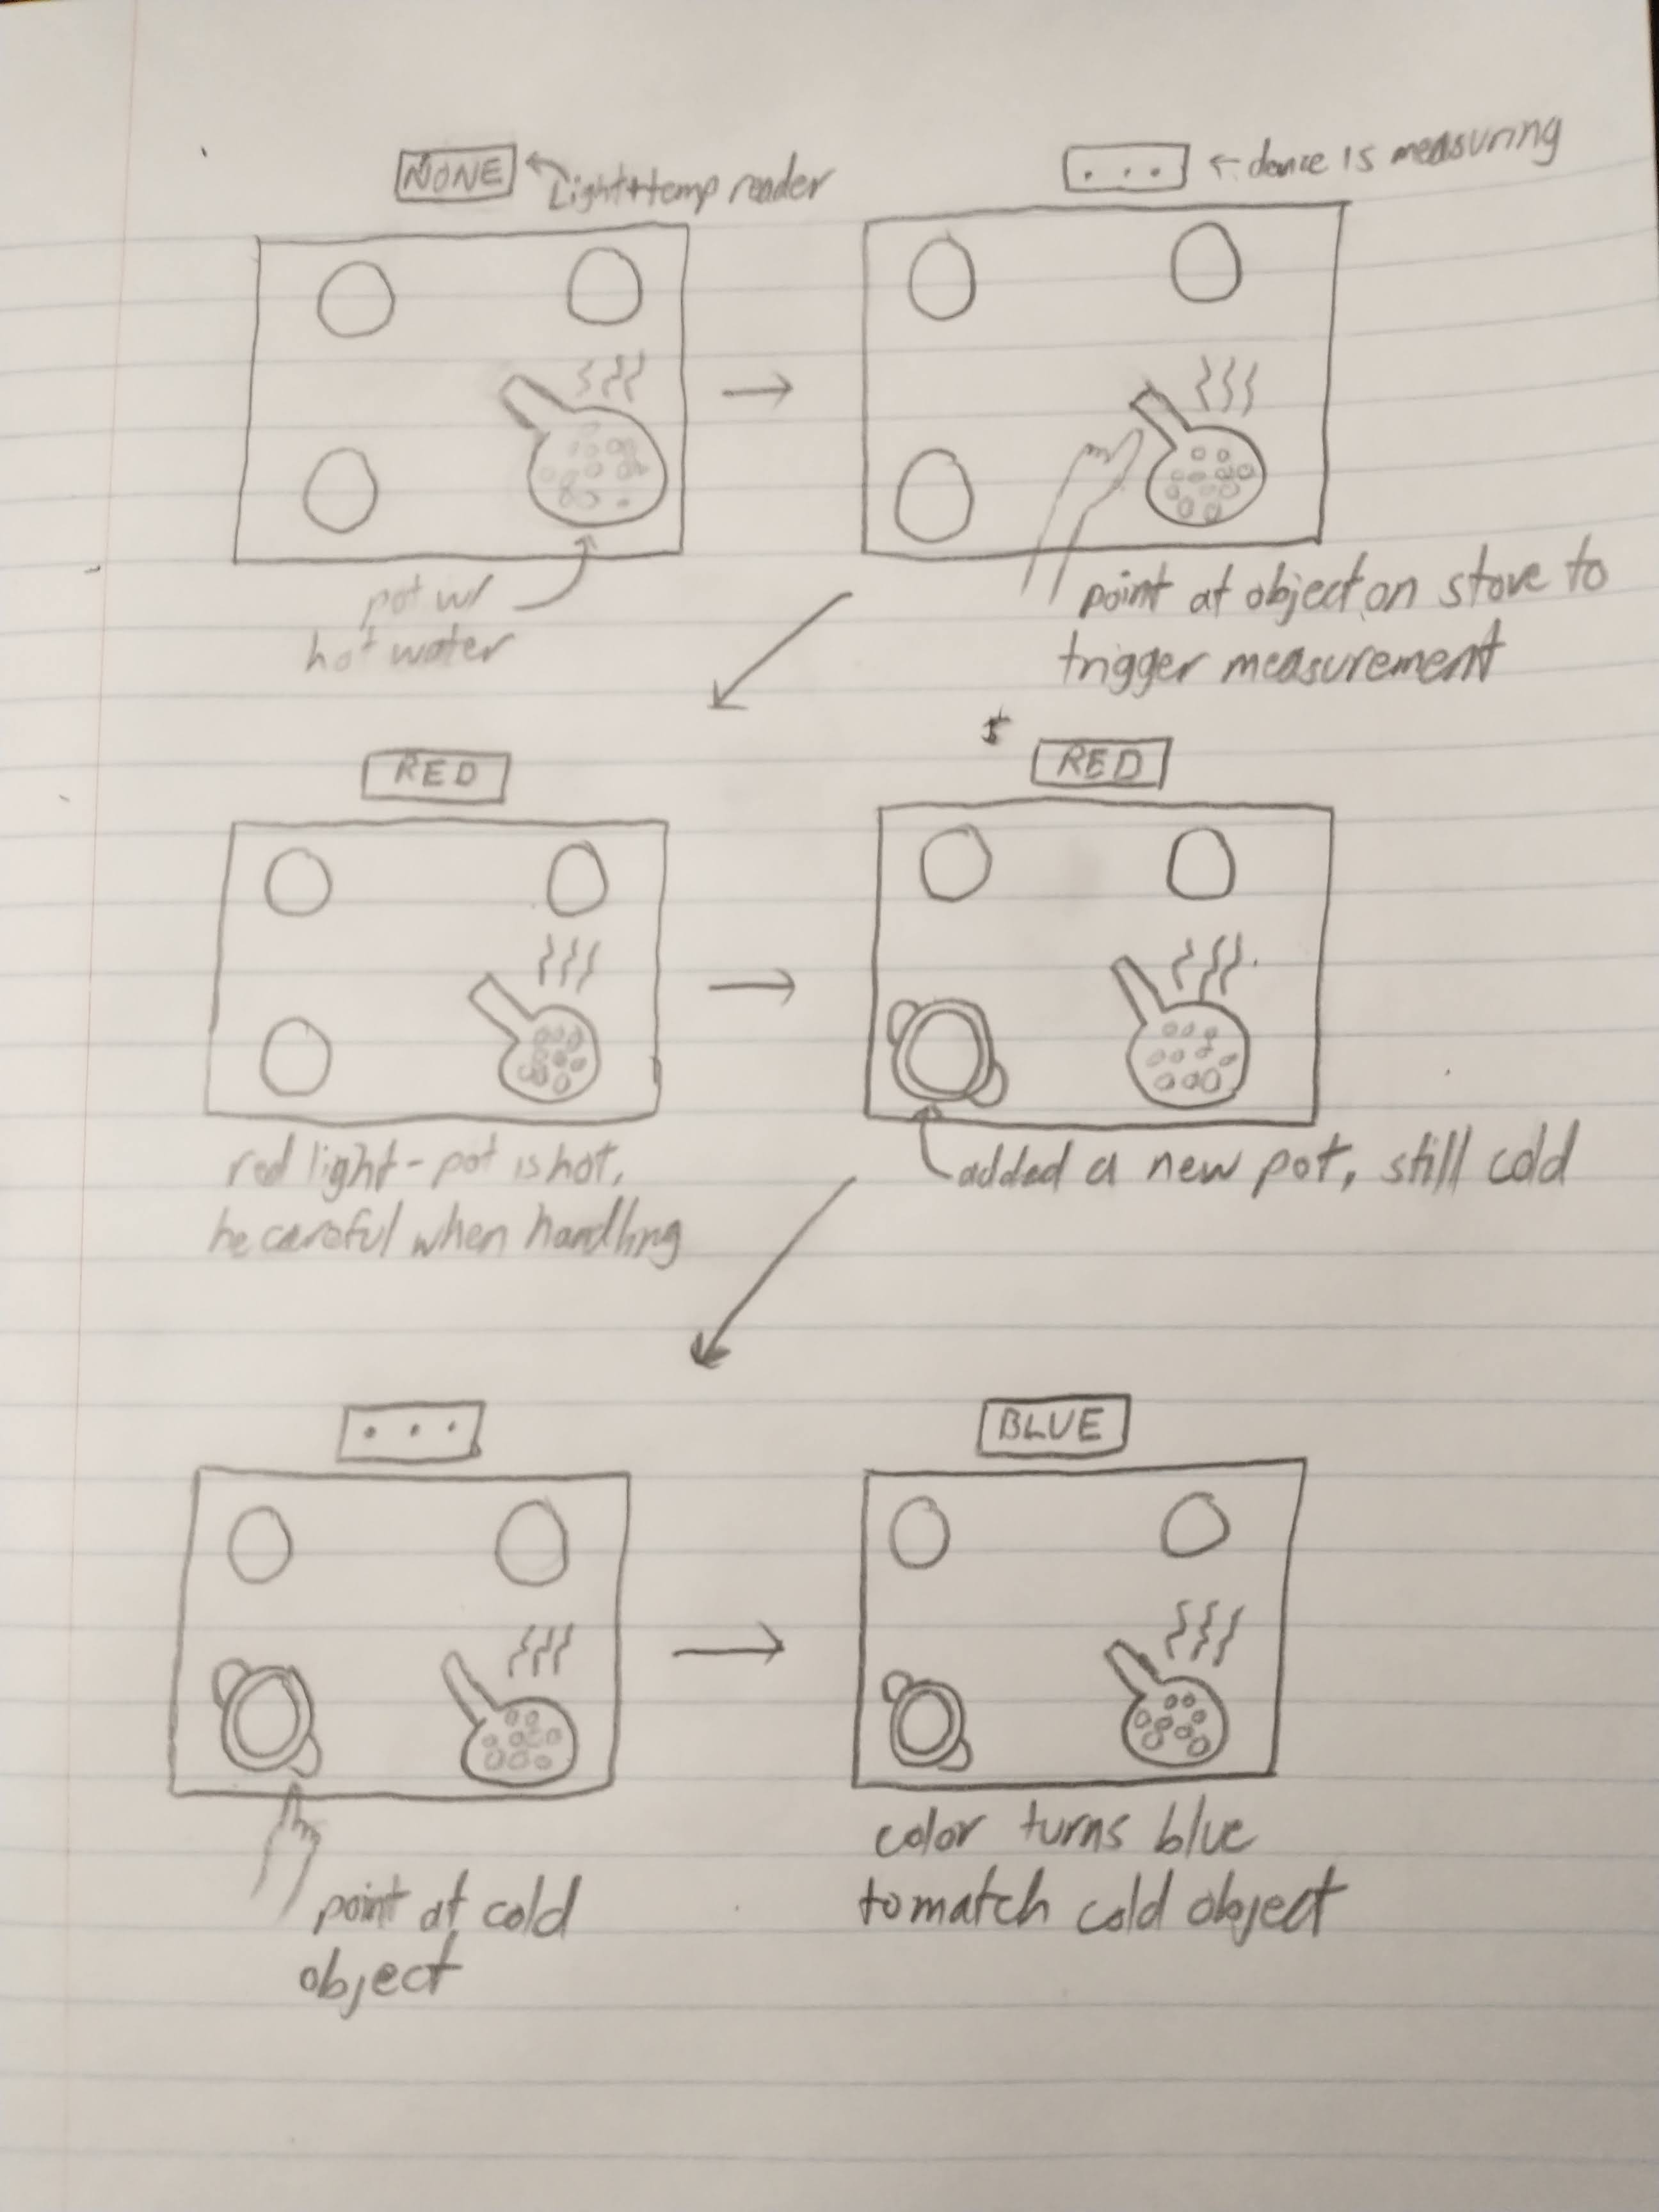 NONE
Light+temp reader
. . .
device is measuring
pot w/
hot water
point at object on stove to
trigger measurement
RED
RED
red light - pot is hot,
be careful when handling
added a new pot, still cold
. . .
BLUE
point at cold
object
color turns blue
to match cold object